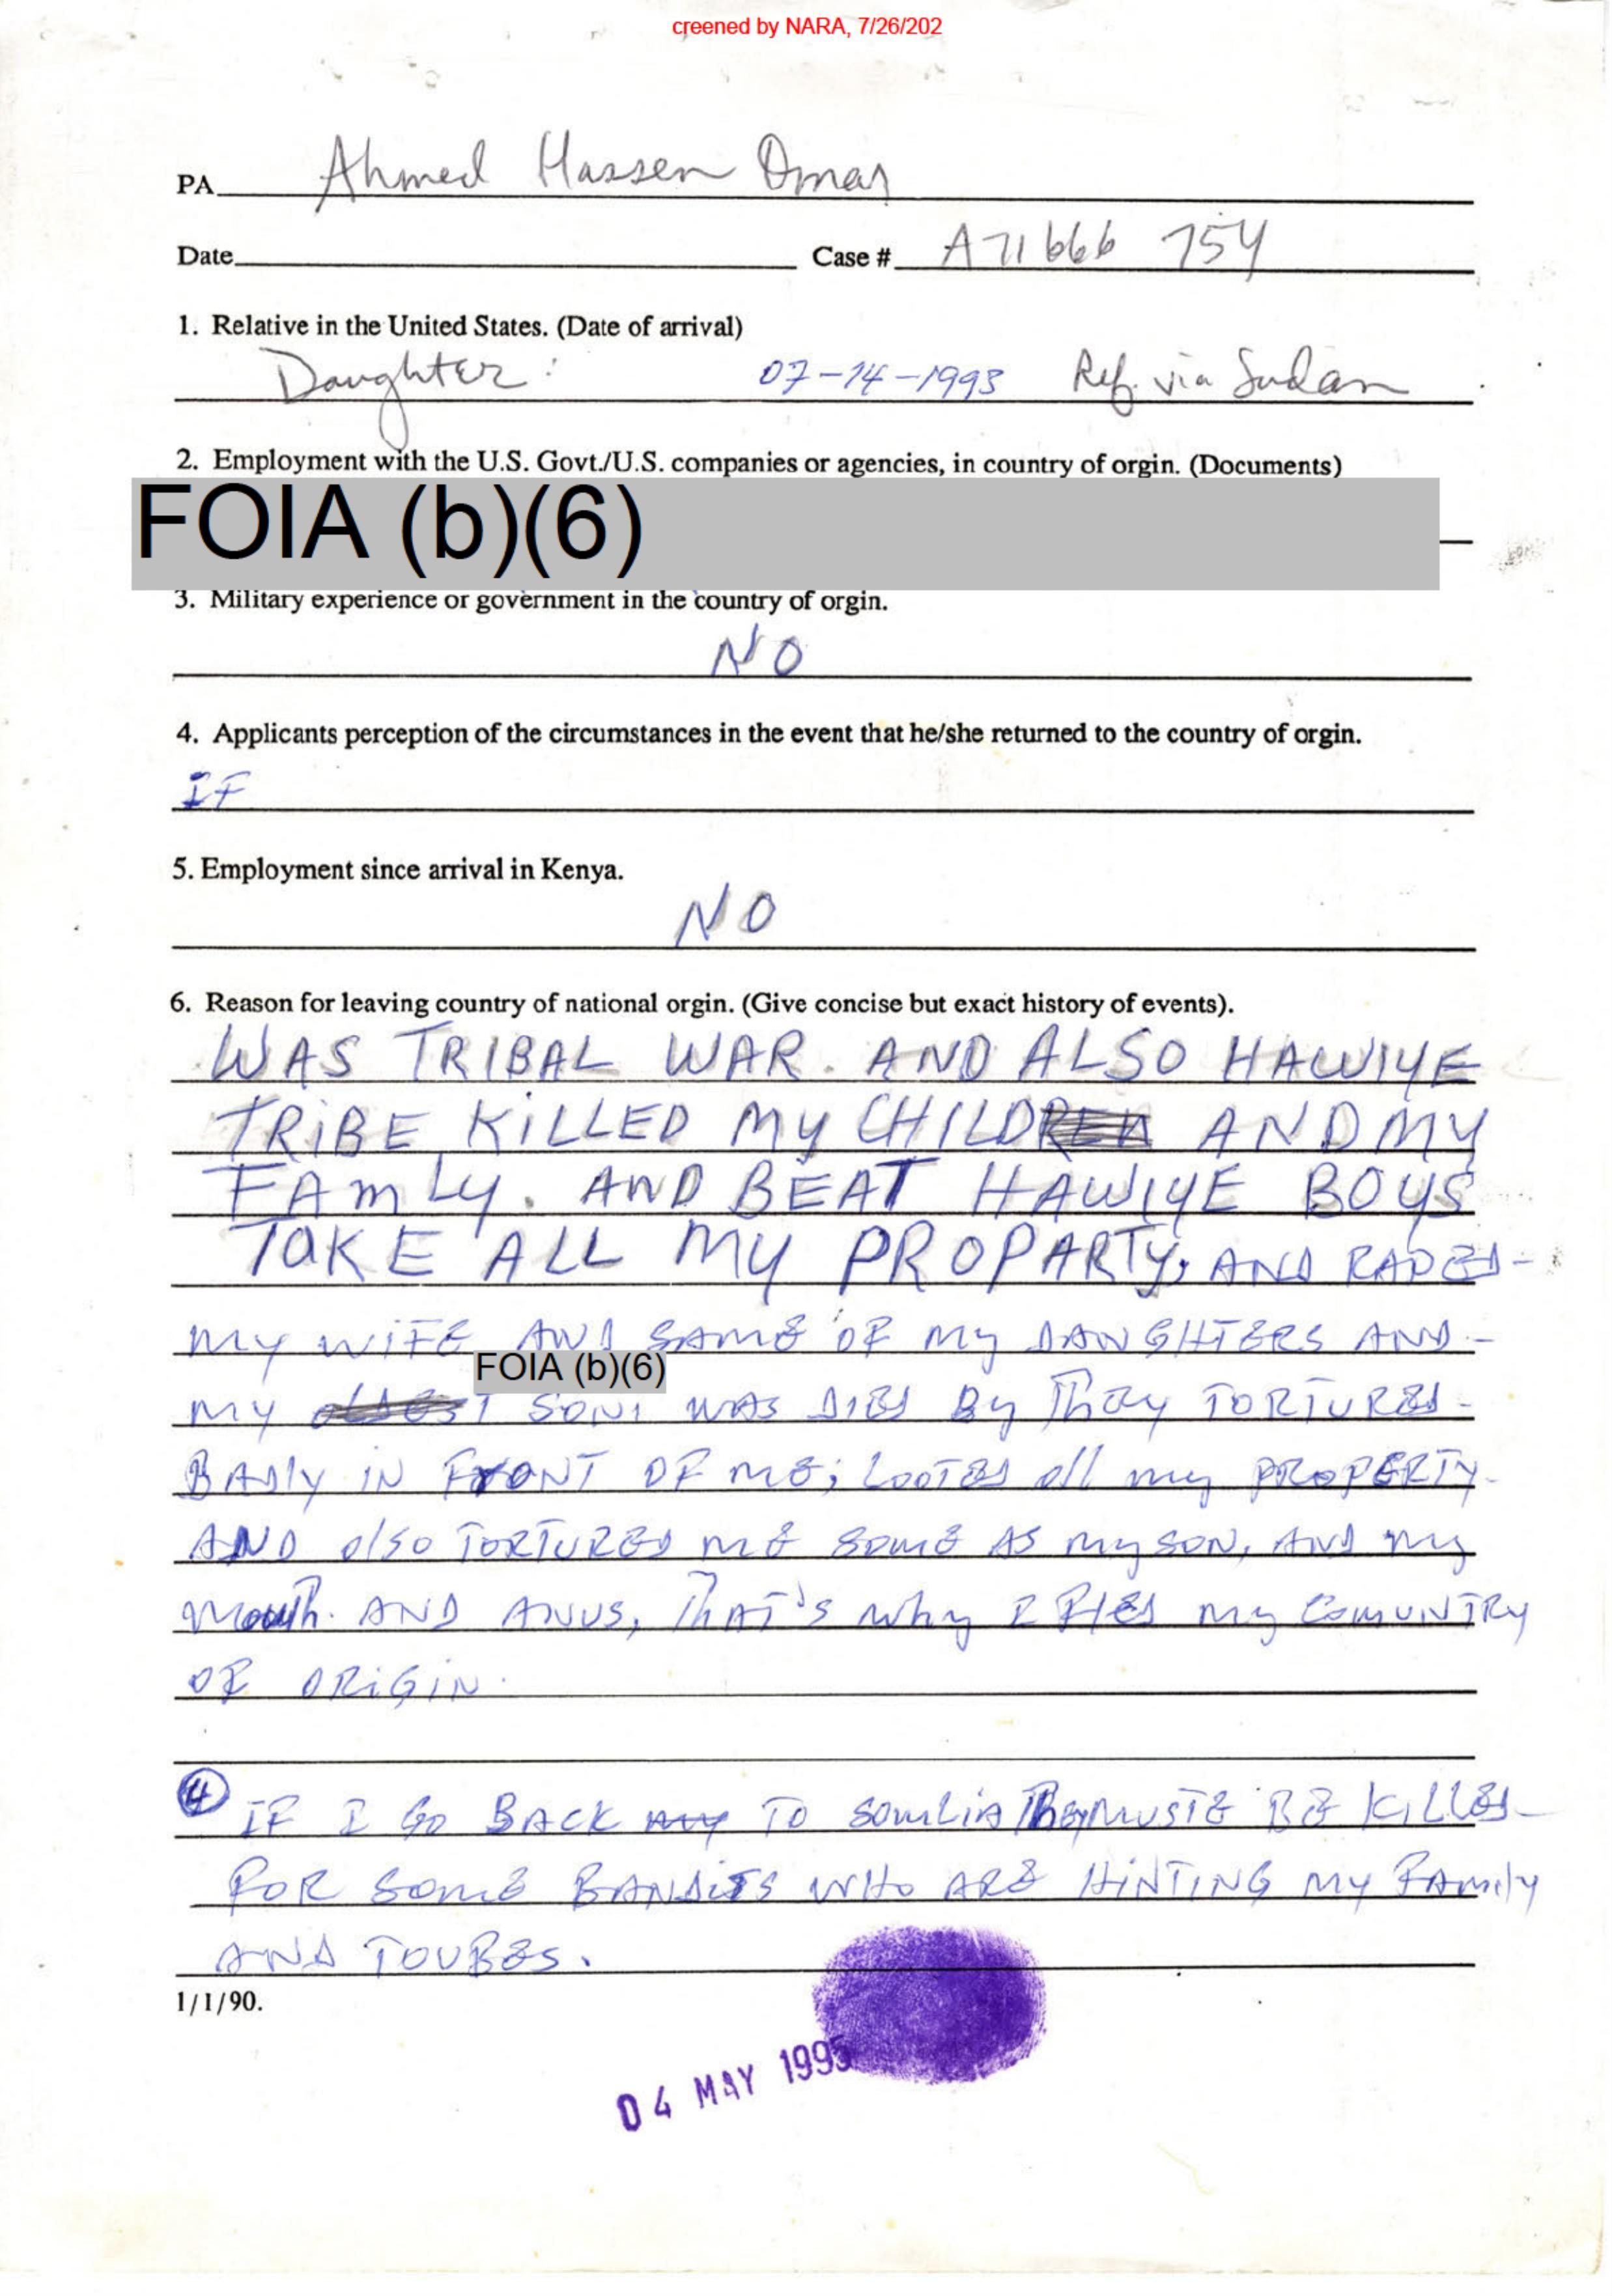 creened by NARA, 7/26/202
PA Ahmed Hassen Omar
Date Case # A71 666 754
1. Relative in the United States. (Date of arrival)
Daughter: 07-14-1993 Ref. via Sudan
2. Employment with the U.S. Govt./U.S. companies or agencies, in country of orgin. (Documents)
FOIA (b)(6)
3. Military experience or government in the country of orgin.
NO
4. Applicants perception of the circumstances in the event that he/she returned to the country of orgin.
IF
5. Employment since arrival in Kenya.
NO
6. Reason for leaving country of national orgin. (Give concise but exact history of events).
WAS TRIBAL WAR. AND ALSO HAWIYE
TRIBE KILLED MY CHILD AND MY
FAMLY. AND BEAT HAWIYE BOYS
TAKE ALL MY PROPARTY, AND RAPED-
MY WIFE AND SAME OF MY DANGHTERS AND-
FOIA (b)(6)
MY SON WAS DIED By They TORTURED-
BADLY IN FRONT OF ME; LOOTED all my PROPERTY-
AND also TORTURED ME SAME AS my SON, AND my
Mouth. AND ANUS, THAT'S why I FLED my COMUNTRY
OF ORIGIN.
4 IF I Go BACK TO SOMLIA They MUSTE BE KILLED-
FOR SOME BANDITS WHO ARE HINTING MY FAMILY
AND TOUBES.
1/1/90.
04 MAY 1995